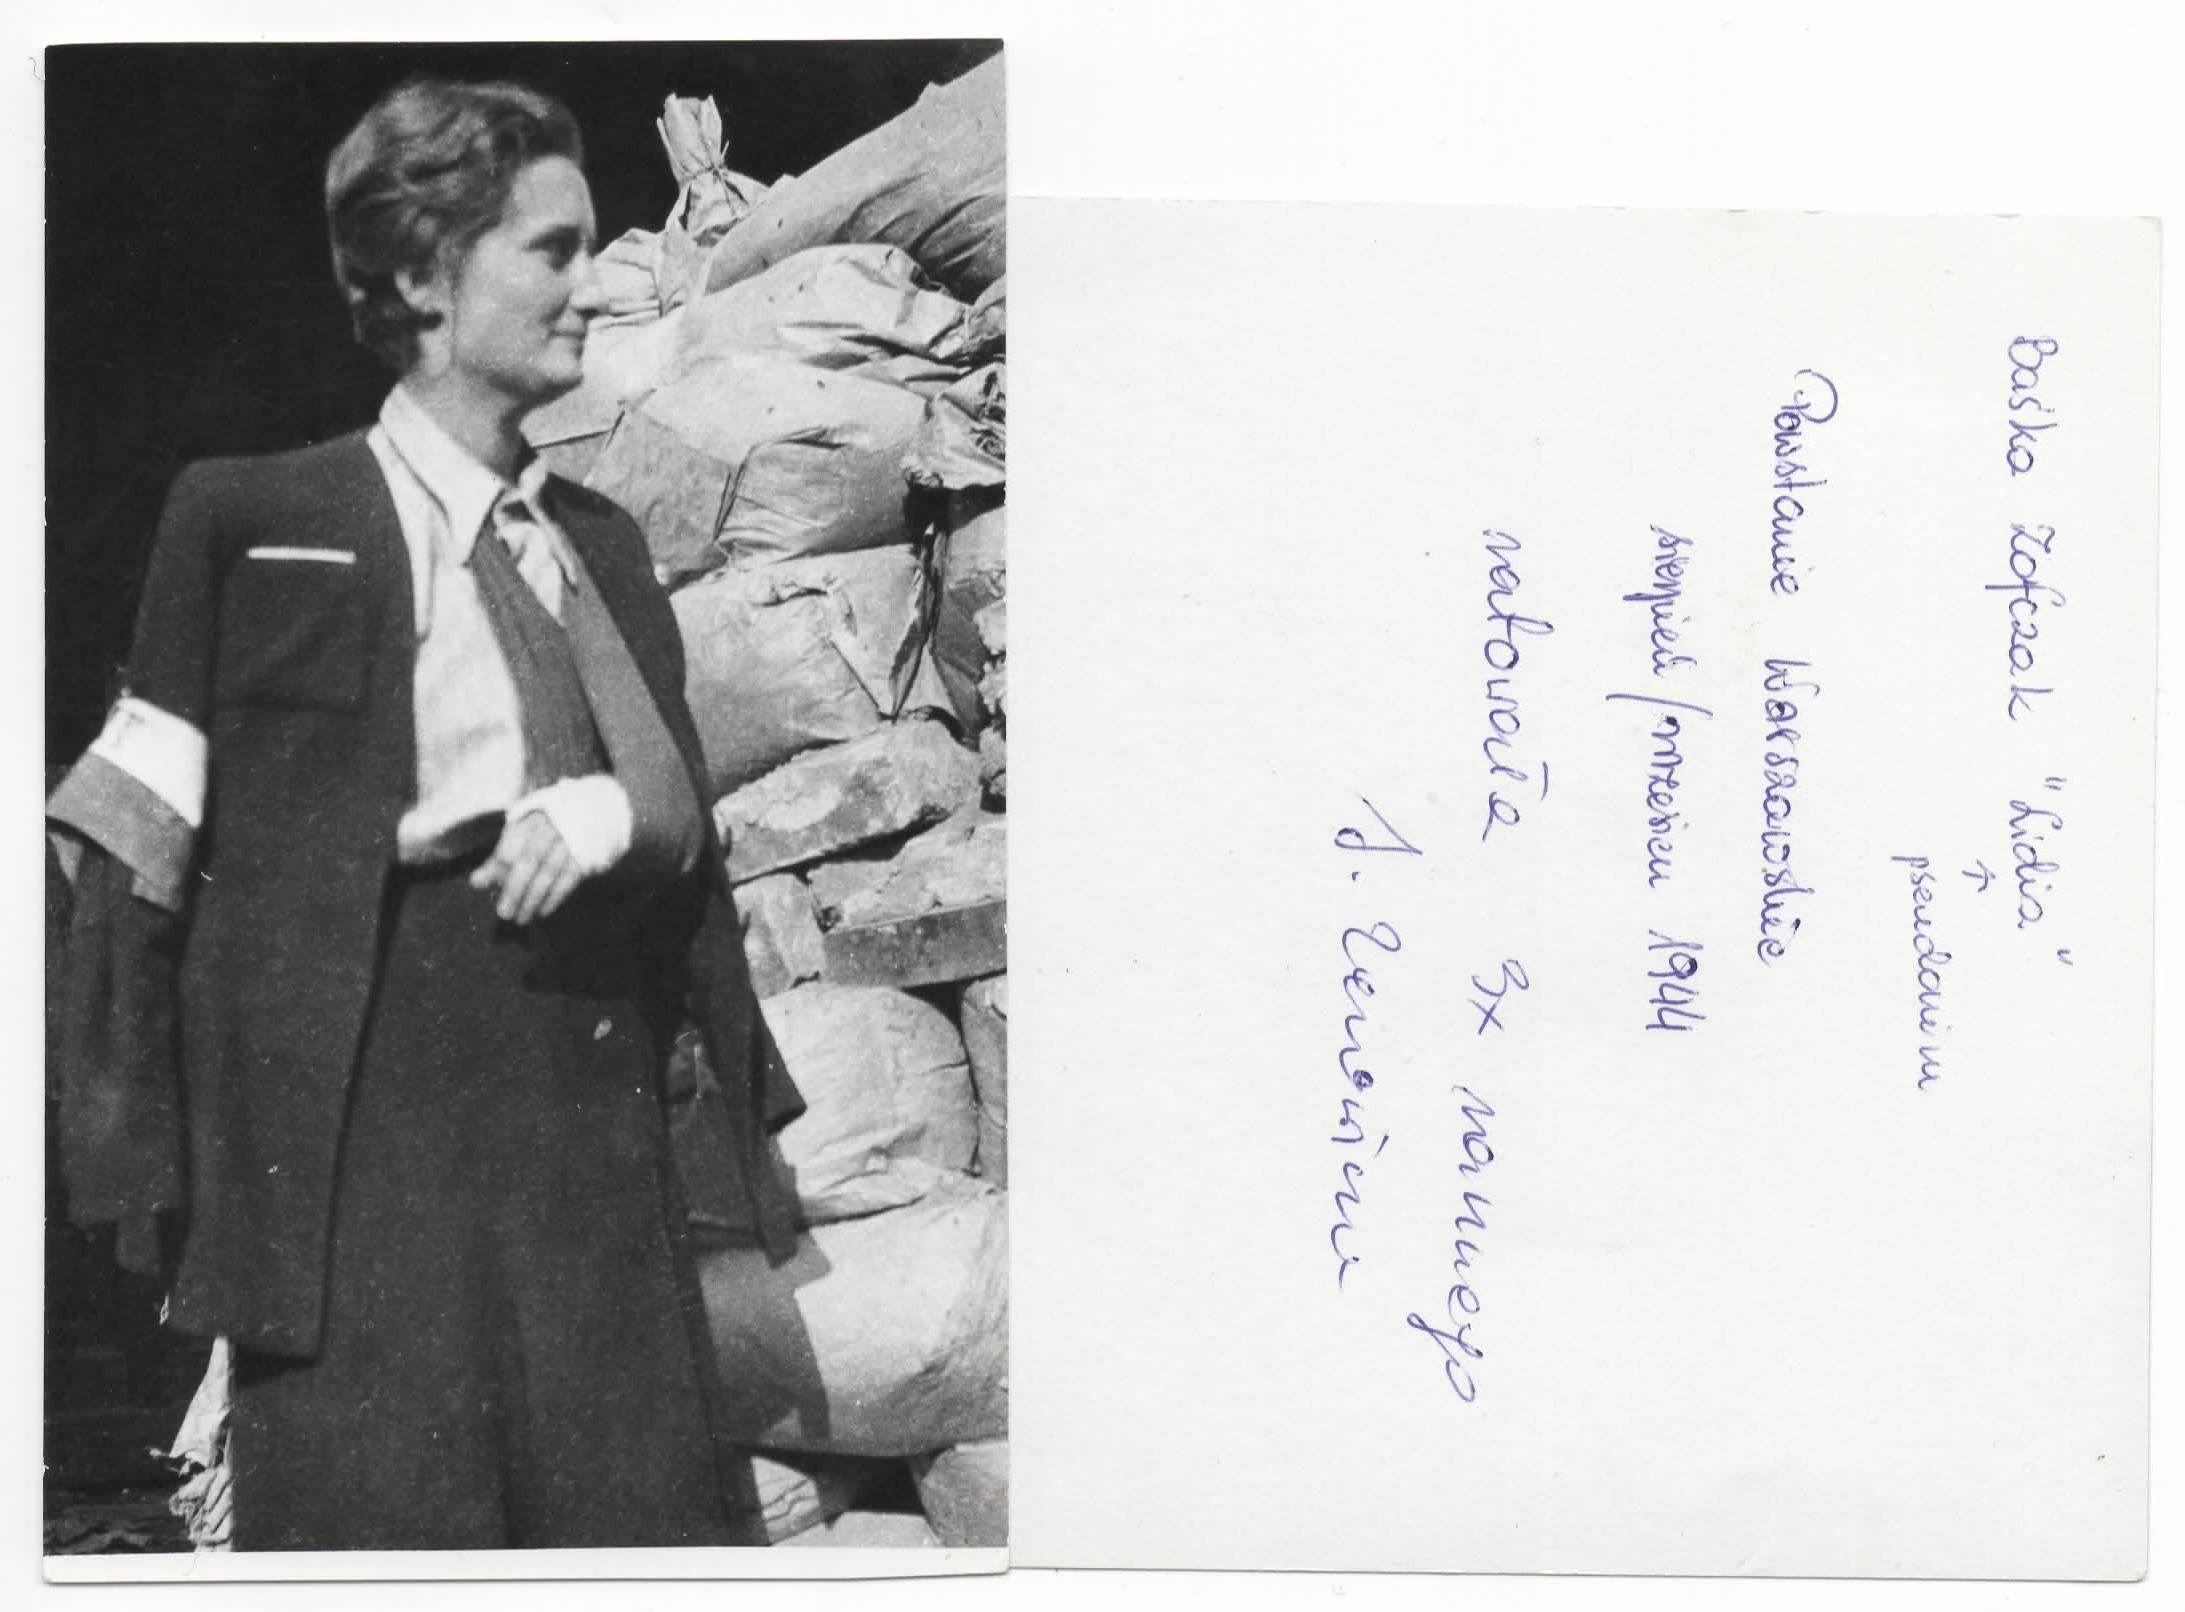 Baśka Zofczak "Lidia"
↑
pseudonim
Powstanie Warszawskie
sierpień/wrzesień 1944
ratowała 3x rannego
J.